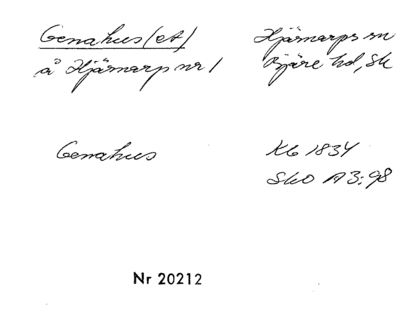 Genahus (et)
å Hjärnarp nr 1
Hjärnarps sn
Bjäre hd, Sk
Genahus
Kb 1834
SkO A3:98
Nr 20212